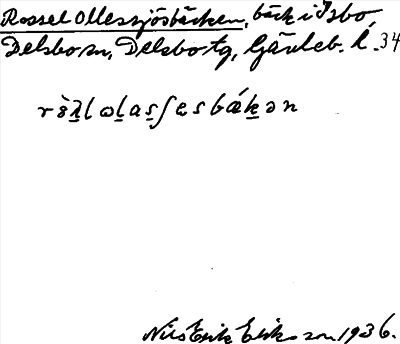 Rossel Ollessjösbäcken, bäck i Isbo,
Delsbo sn, Delsbo tg, Gävleb. l. 34
Nils Erik Eliksson 1936.